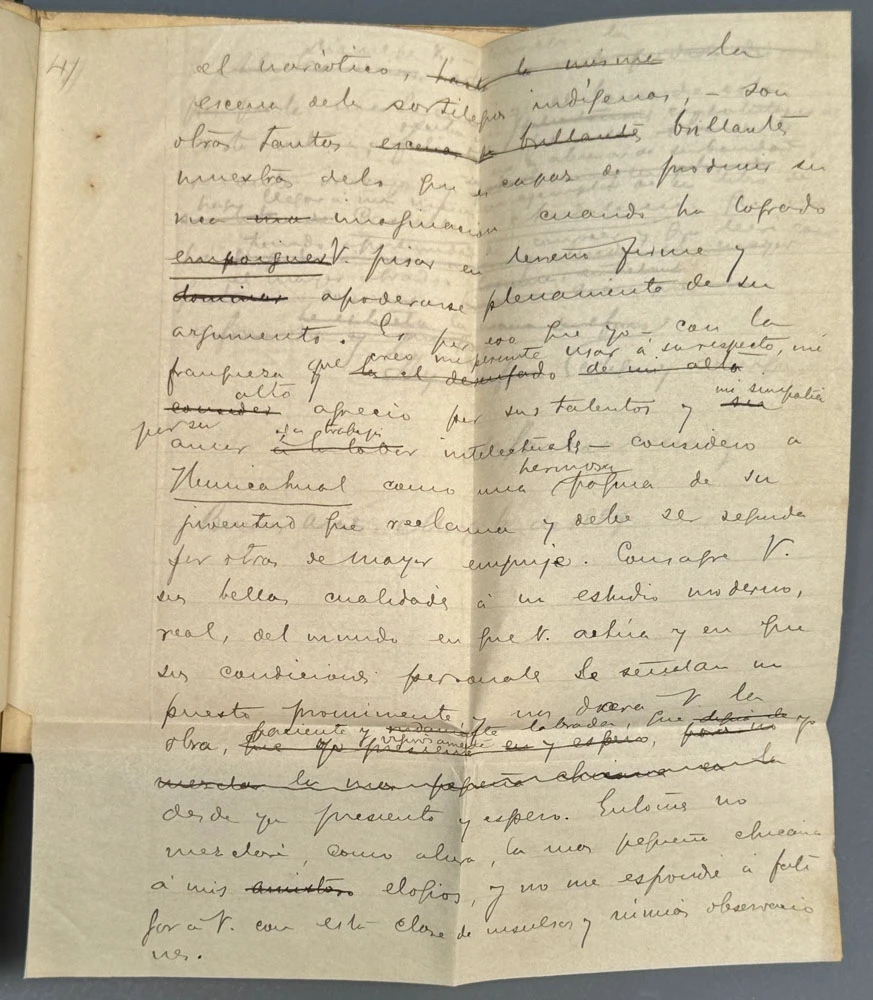 4/
el narcótico, hast la misma la
escena de los sortilegios indígenas, – son
otras tantas escenas de brillantes brillantes
muestras de lo que es capaz de producir su
rica una imaginación cuando ha logrado
V. pisar en terreno firme y
dominar apoderarse plenamente de su
argumento. Es por eso que yo – con la
que creo me permite usar á su respecto, mi
franqueza y la el desenfado de mi alto
alto mi simpatia
conside aprecio por sus talentos y su
por su trabajo
amor á la labor intelectual – considero a
hermosa
Huincahual como una página de su
juventud que reclama y debe ser seguida
por otras de mayor empuje. Consagre V.
sus bellas cualidades á un estudio moderno,
real, del mundo en que V. actúa y en que
sus condiciones personales le señalan un
puesto prominente, y nos dará V la
paciente y vigorosamente labrada, que yo
obra, que yo presiento en y espero,
mezclar la mas pequeña chicana en la
desde ya presiento y espero. Entonces no
mezclaré, como ahora, la mas pequeña chicana
á mis elogios, y no me espondré á fati
gar á V. con esta clase de insulsas y nimias observacio
nes.